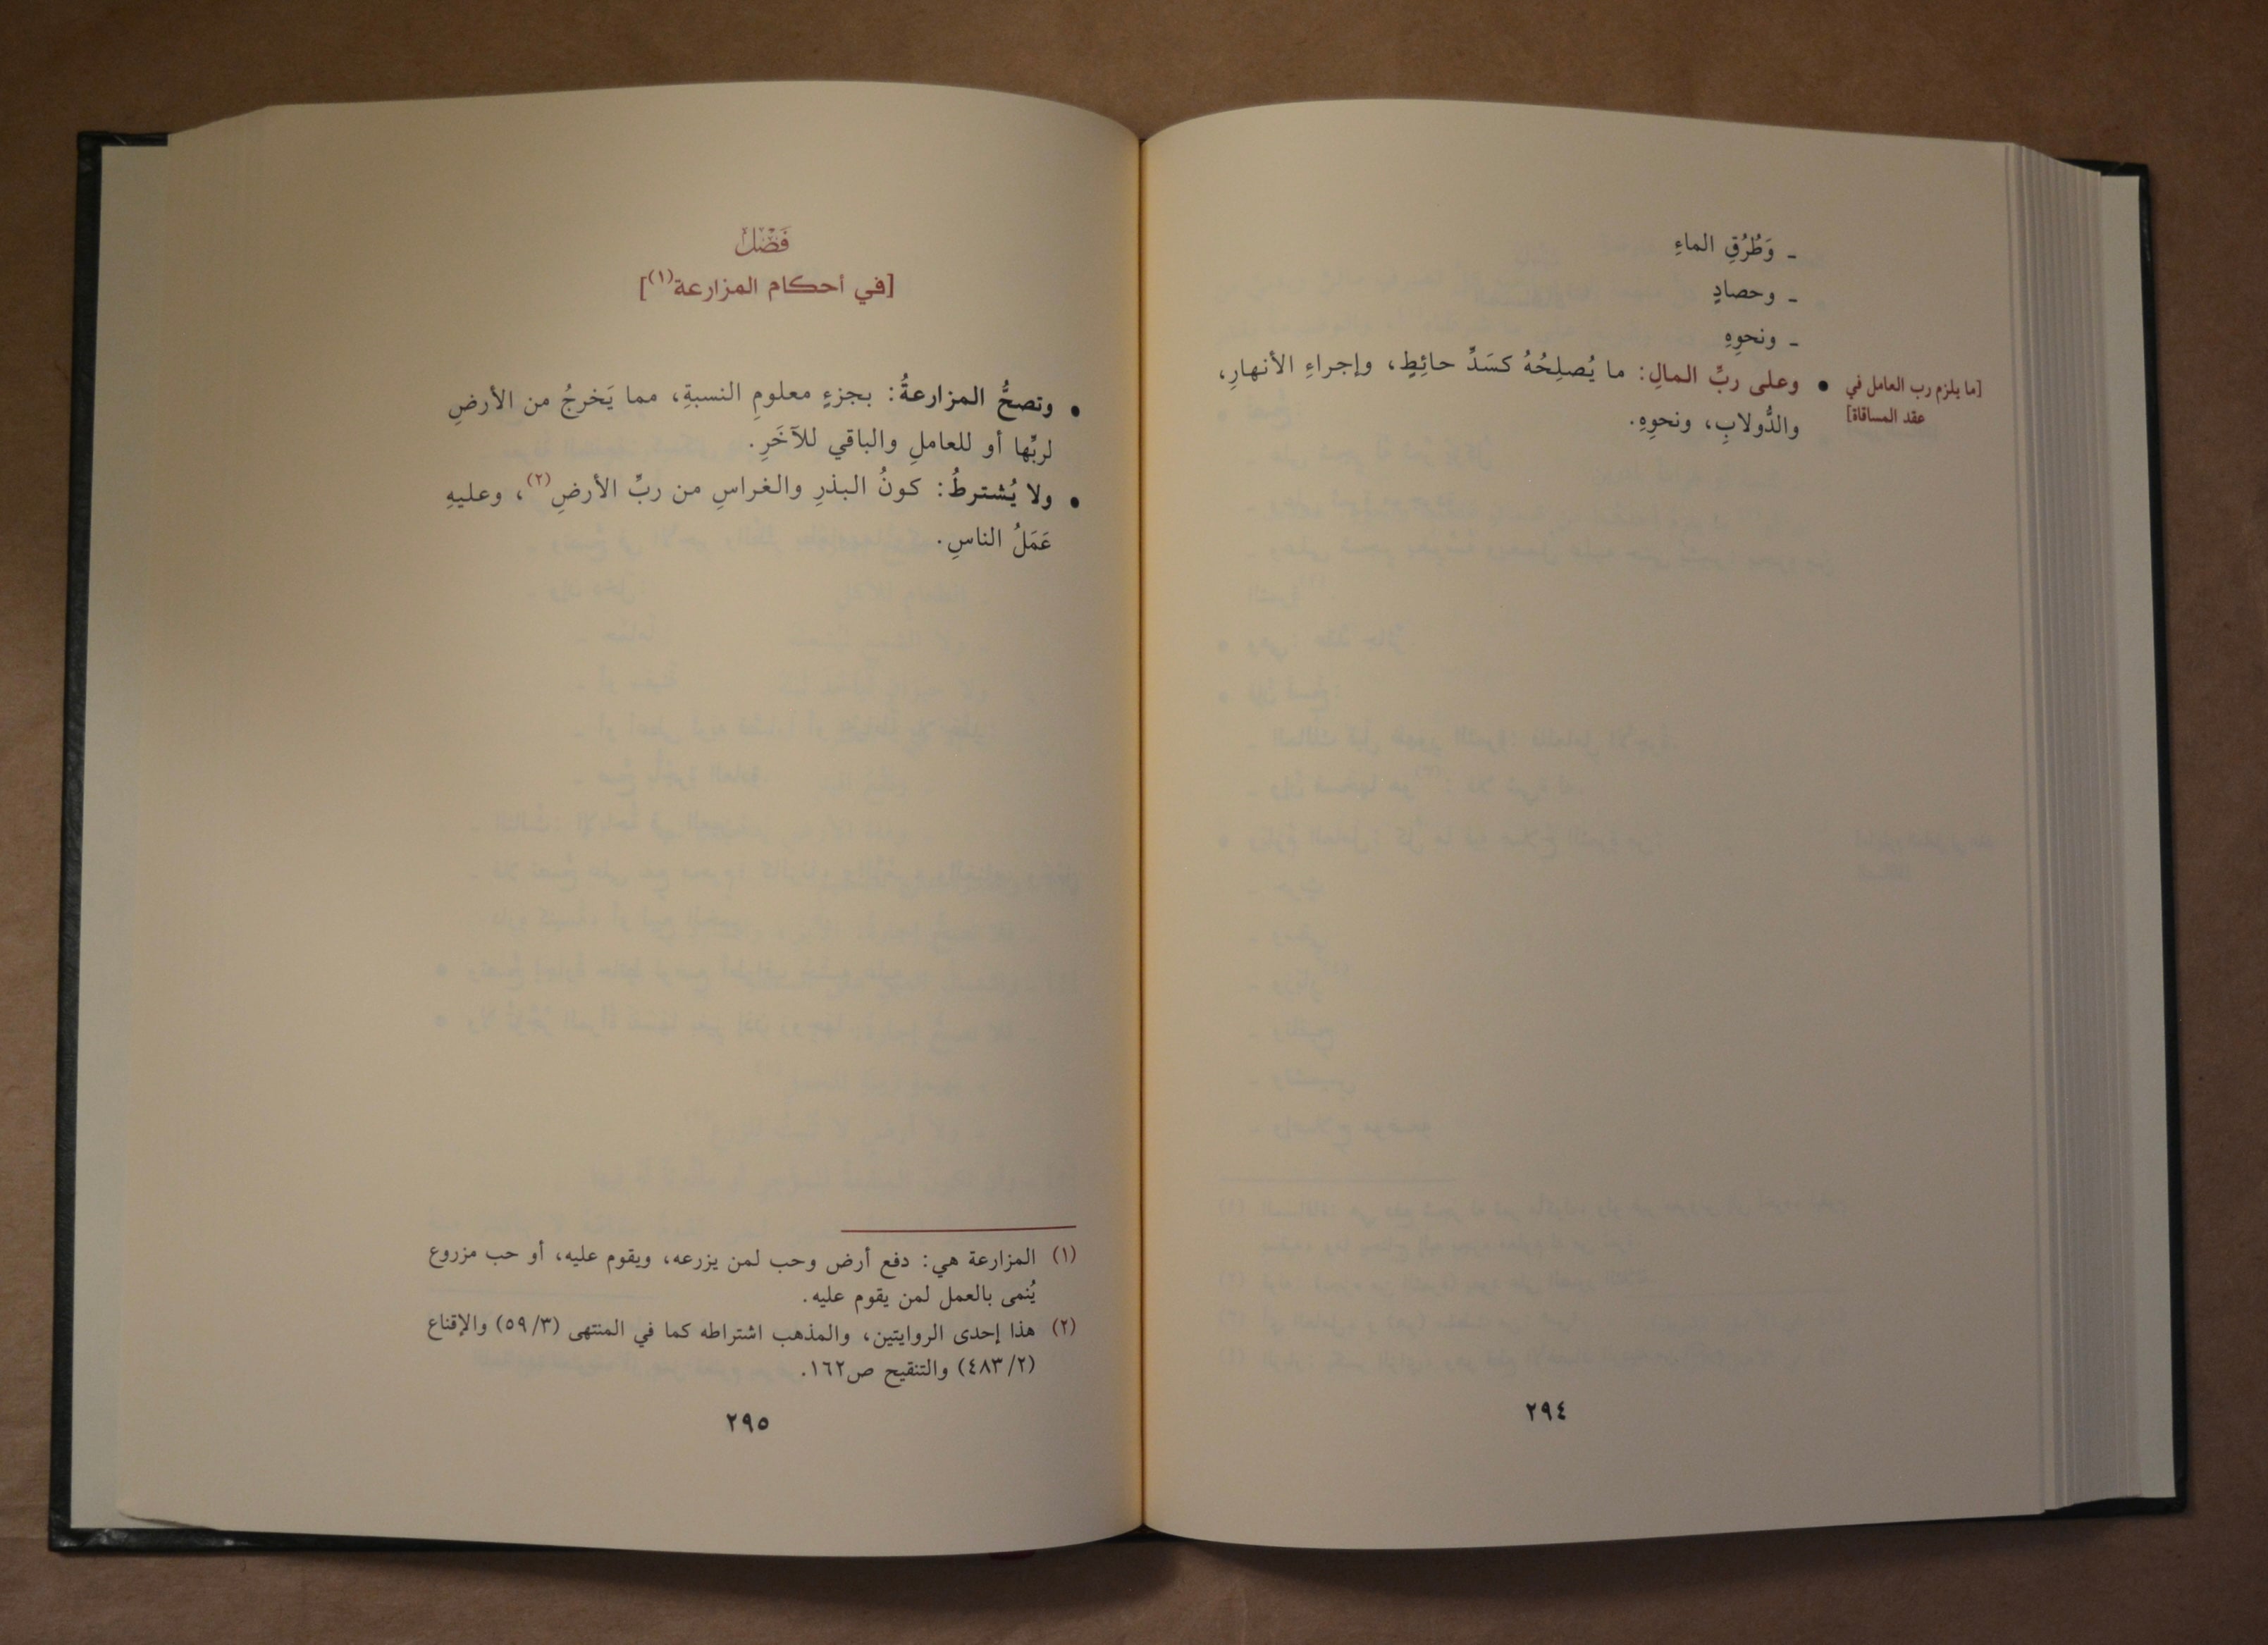 ـ وَطُرُقِ الماءِ
ـ وحصادٍ
ـ ونحوِهِ
[ما يلزم رب العامل في
عقد المساقاة]
• وعلى ربِّ المالِ: ما يُصلِحُهُ كسَدِّ حائِطٍ، وإجراءِ الأنهارِ،
والدُّولابِ، ونحوِهِ.
٢٩٤
فَصْل
[في أحكام المزارعة(١)]
• وتصحُّ المزارعةُ: بجزءٍ معلومِ النسبةِ، مما يَخرجُ من الأرضِ
لربِّها أو للعاملِ والباقي للآخَرِ.
• ولا يُشترطُ: كونُ البذرِ والغراسِ من ربِّ الأرضِ(٢)، وعليهِ
عَمَلُ الناسِ.
(١) المزارعة هي: دفع أرض وحب لمن يزرعه، ويقوم عليه، أو حب مزروع
يُنمى بالعمل لمن يقوم عليه.
(٢) هذا إحدى الروايتين، والمذهب اشتراطه كما في المنتهى (٣/٥٩) والإقناع
(٢/٤٨٣) والتنقيح ص١٦٢.
٢٩٥